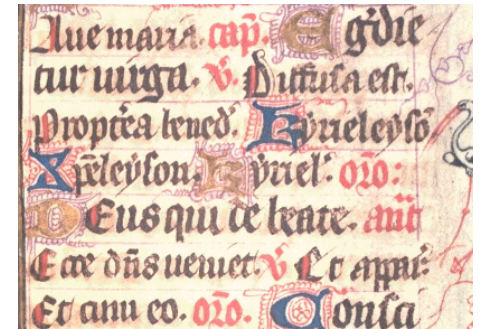 Aue maria. cap. Egrdie
tur uirga. v. Diffusa est.
Proptea bened. Kyrieleyso
Xpeleyson. Kyriel. oro:
DEus qui de beate. ant
Ecce dns ueniet. v Et appar.
Et cum eo. oro. Consci